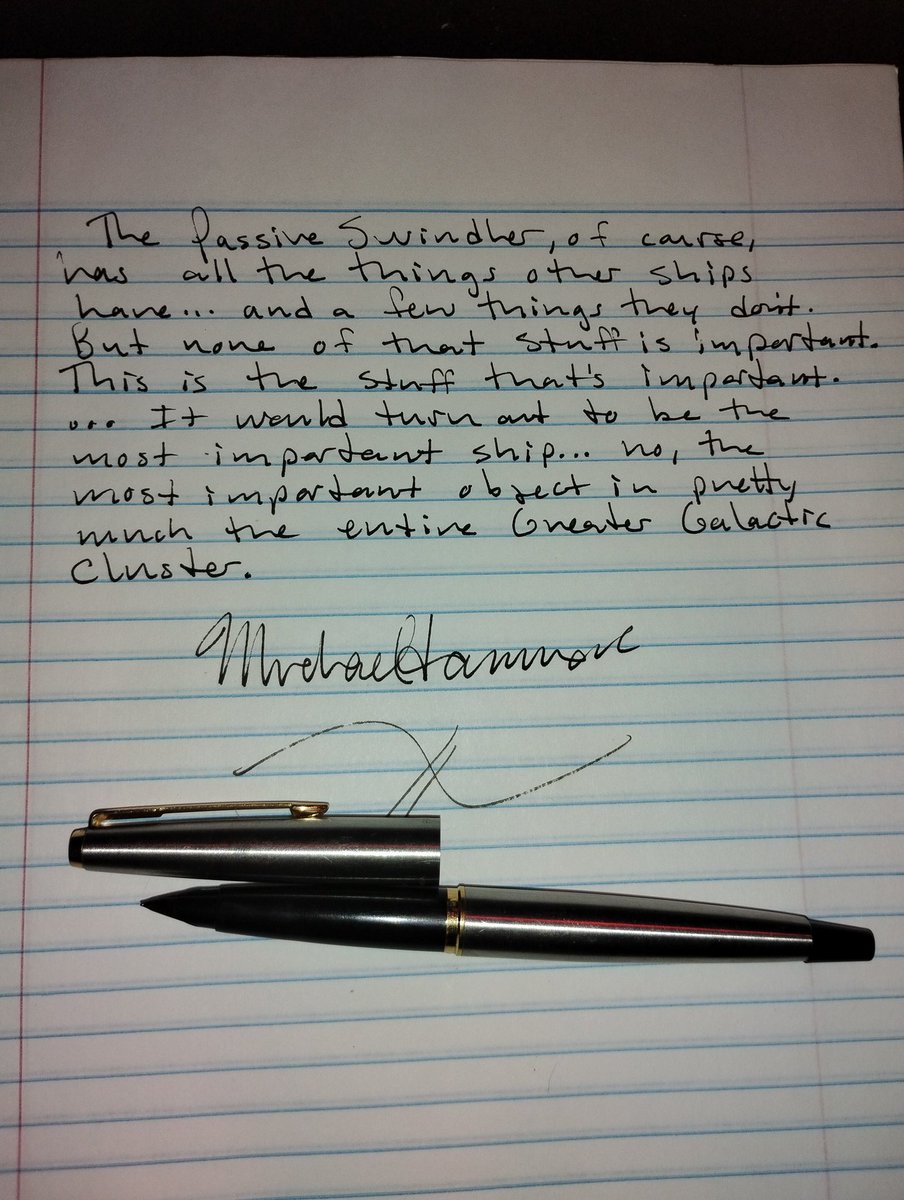 The Passive Swindler, of course,
has all the things other ships
have... and a few things they don't.
But none of that stuff is important.
This is the stuff that's important.
... It would turn out to be the
most important ship... no, the
most important object in pretty
much the entire Greater Galactic
Cluster.
Michael